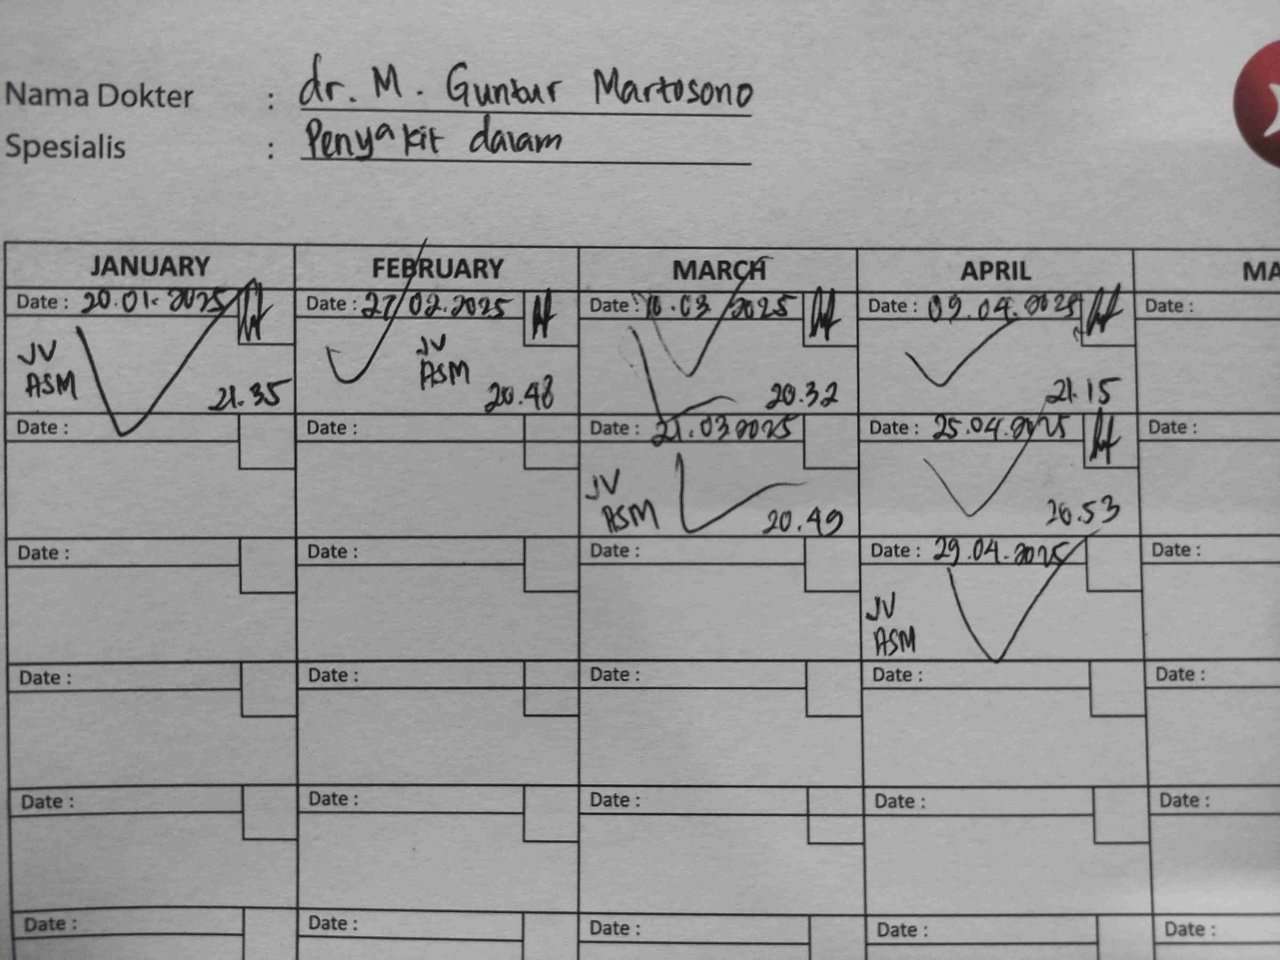 Nama Dokter : dr. M. Guntur Martosono
Spesialis : Penyakit dalam
JANUARY FEBRUARY MARCH APRIL MA
Date : 20.01.2025 Date : 27.02.2025 Date : 10.03.2025 Date : 09.04.2025 Date :
JV JV
ASM 21.35 ASM 20.48 20.32 21.15
Date : Date : Date : 21.03.2025 Date : 25.04.2025 Date :
JV
ASM 20.49 20.53
Date : Date : Date : Date : 29.04.2025 Date :
JV
ASM
Date : Date : Date : Date : Date :
Date : Date : Date : Date : Date :
Date : Date : Date : Date : Date :